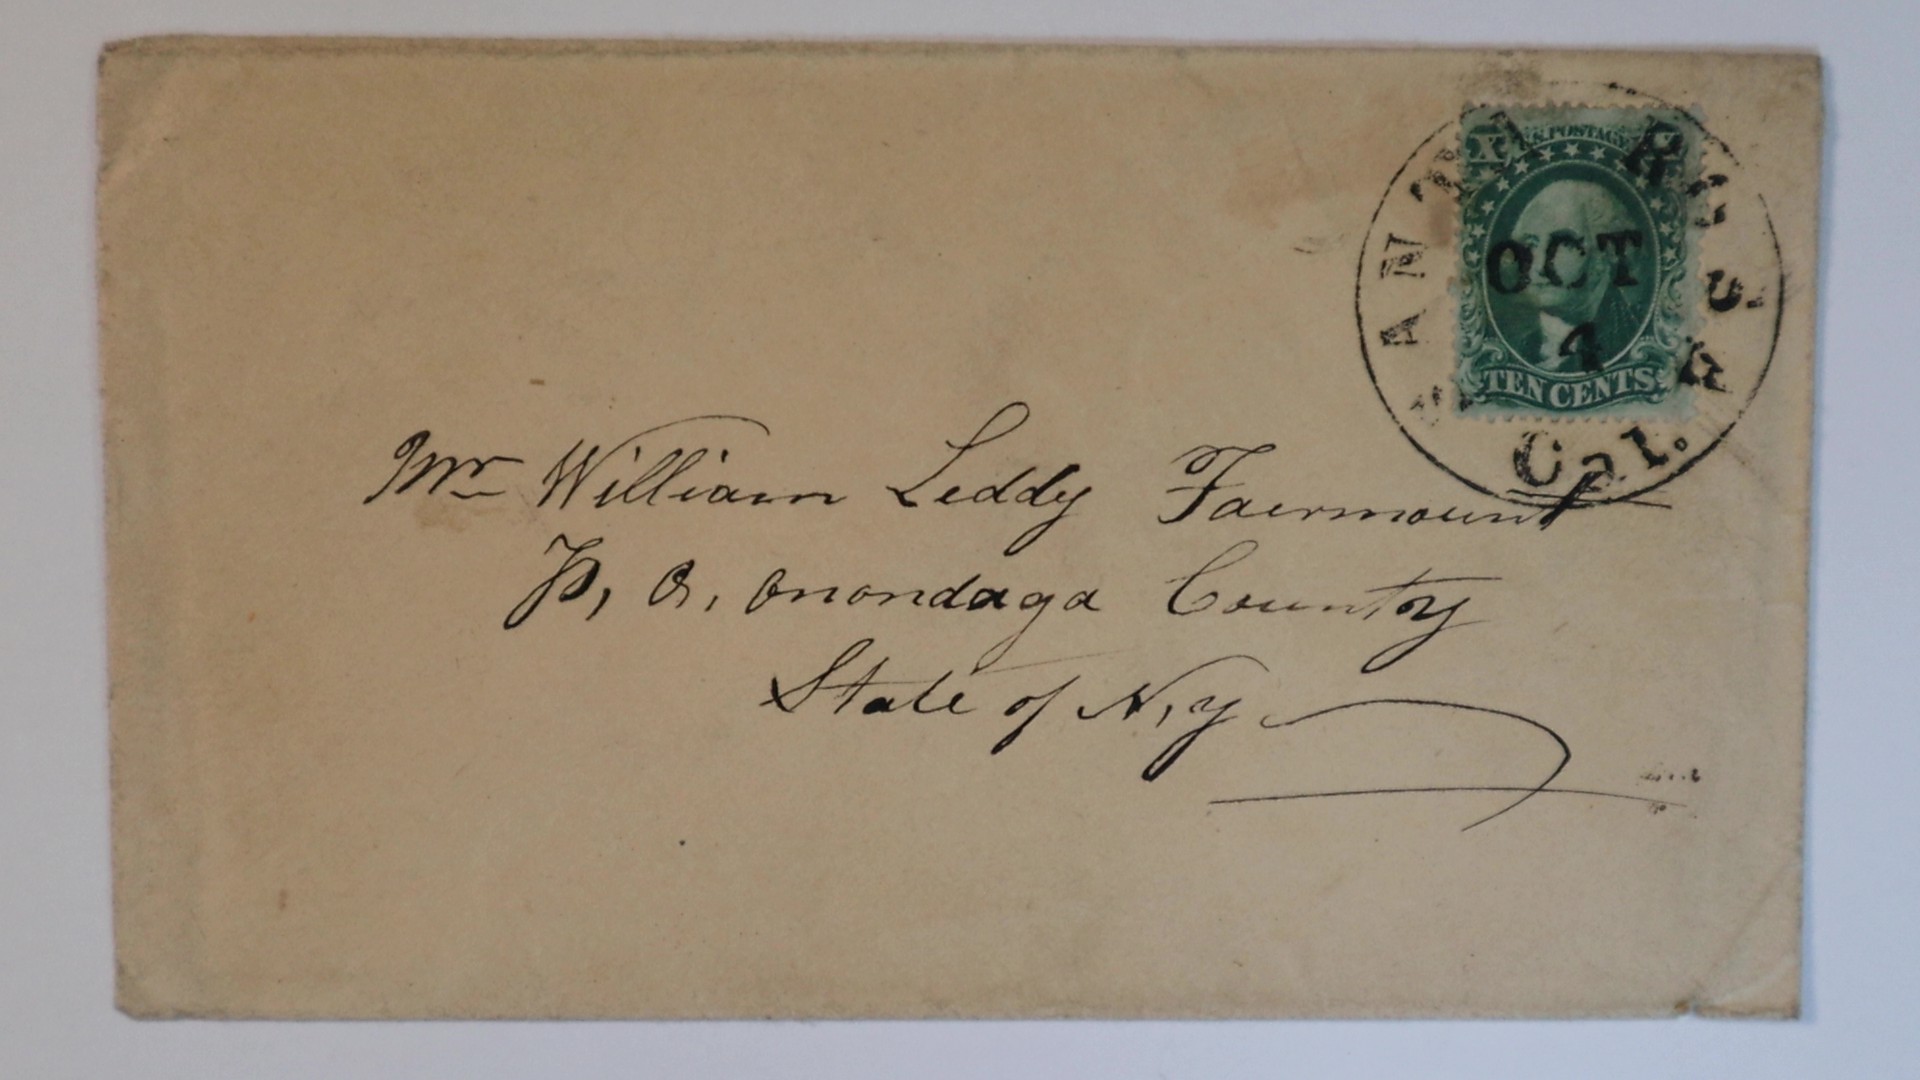 SANTA ROSA
OCT
4
Cal.
X U.S. POSTAGE X
TEN CENTS
Mr William Leddy Fairmount
P, O, Onondaga County
State of N, y